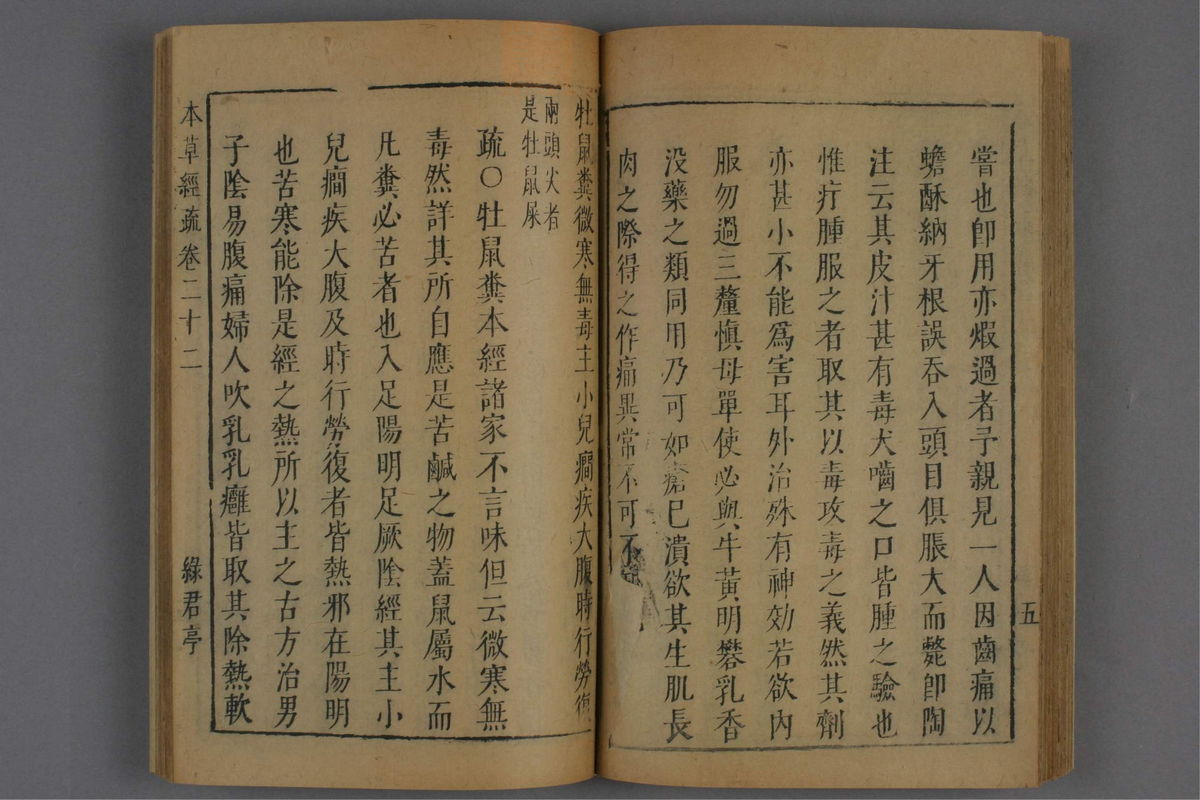 五
嘗也卽用亦煆過者予親見一人因齒痛以
蟾酥納牙根誤吞入頭目俱脹大而斃卽陶
注云其皮汁甚有毒犬嚙之口皆腫之驗也
惟疔腫服之者取其以毒攻毒之義然其劑
亦甚小不能爲害耳外治殊有神効若欲內
服勿過三釐愼母單使必與牛黃明礬乳香
没藥之類同用乃可如瘡已潰欲其生肌長
肉之際得之作痛異常不可不
牡鼠糞微寒無毒主小兒癇疾大腹時行勞復
兩頭尖者
是牡鼠屎
疏〇牡鼠糞本經諸家不言味但云微寒無
毒然詳其所自應是苦鹹之物蓋鼠屬水而
凡糞必苦者也入足陽明足厥陰經其主小
兒癇疾大腹及時行勞復者皆熱邪在陽明
也苦寒能除是經之熱所以主之古方治男
子陰易腹痛婦人吹乳乳癰皆取其除熱軟
本草經疏卷二十二
綠君亭